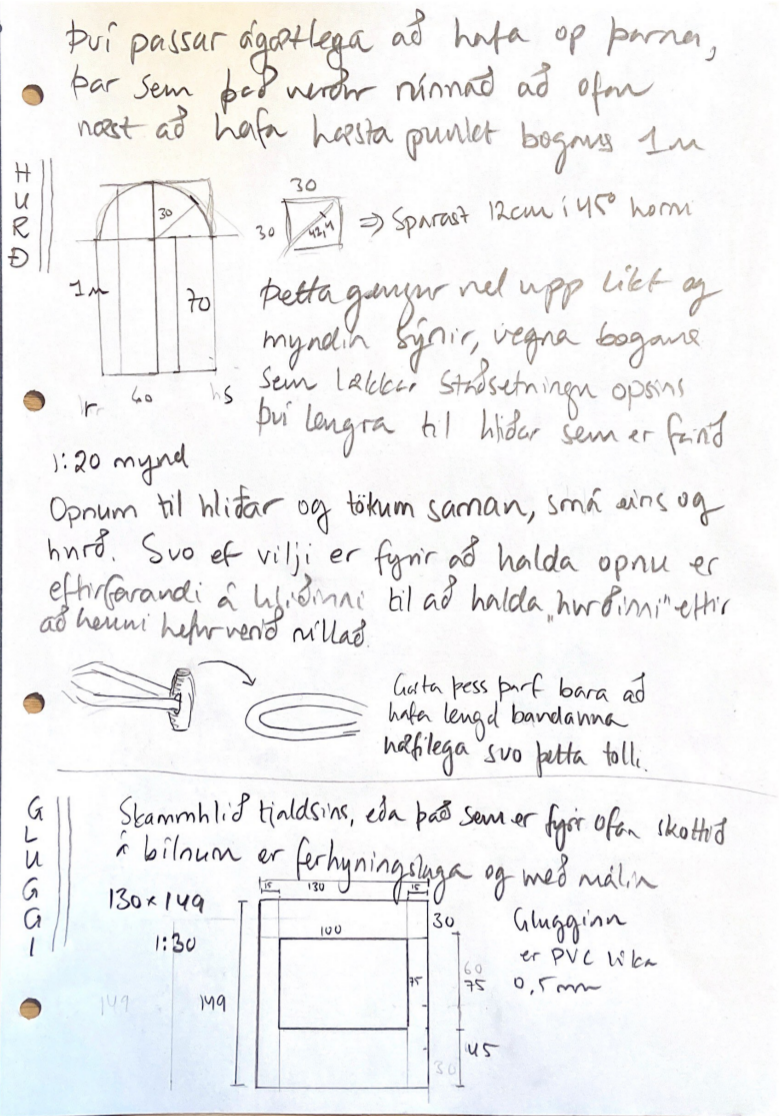 Því passar ágætlega að hafa op þarna,
þar sem það verður rúnnað að ofan
næst að hafa hæsta punkt bogans 1m
HURÐ
30
30
30
42,4
⇒ Sparast 12cm í 45° horni
1m
70
60
Þetta gengur vel upp líkt og
myndin sýnir, vegna bogans
sem lækkar staðsetningu opsins
því lengra til hliðar sem er farið
1:20 mynd
Opnum til hliðar og tökum saman, smá eins og
hurð. Svo ef vilji er fyrir að halda opnu er
eftirfarandi á hliðinni til að halda „hurðinni" eftir
að henni hefur verið rúllað.
Gæta þess þarf bara að
hafa lengd bandanna
hæfilega svo þetta tolli.
GLUGGI
Skammhlið tjaldsins, eða það sem er fyrir ofan skottið
á bílnum er ferhyrningslaga og með málin
130×149
15
130
15
1:30
30
100
Glugginn
er PVC líka
0,5mm
60
75
75
149
149
45
30